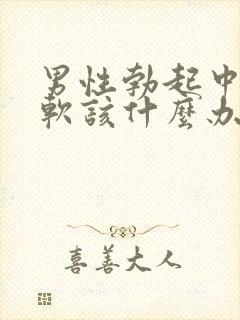 男性勃起中
軟該什麼办
喜善大人